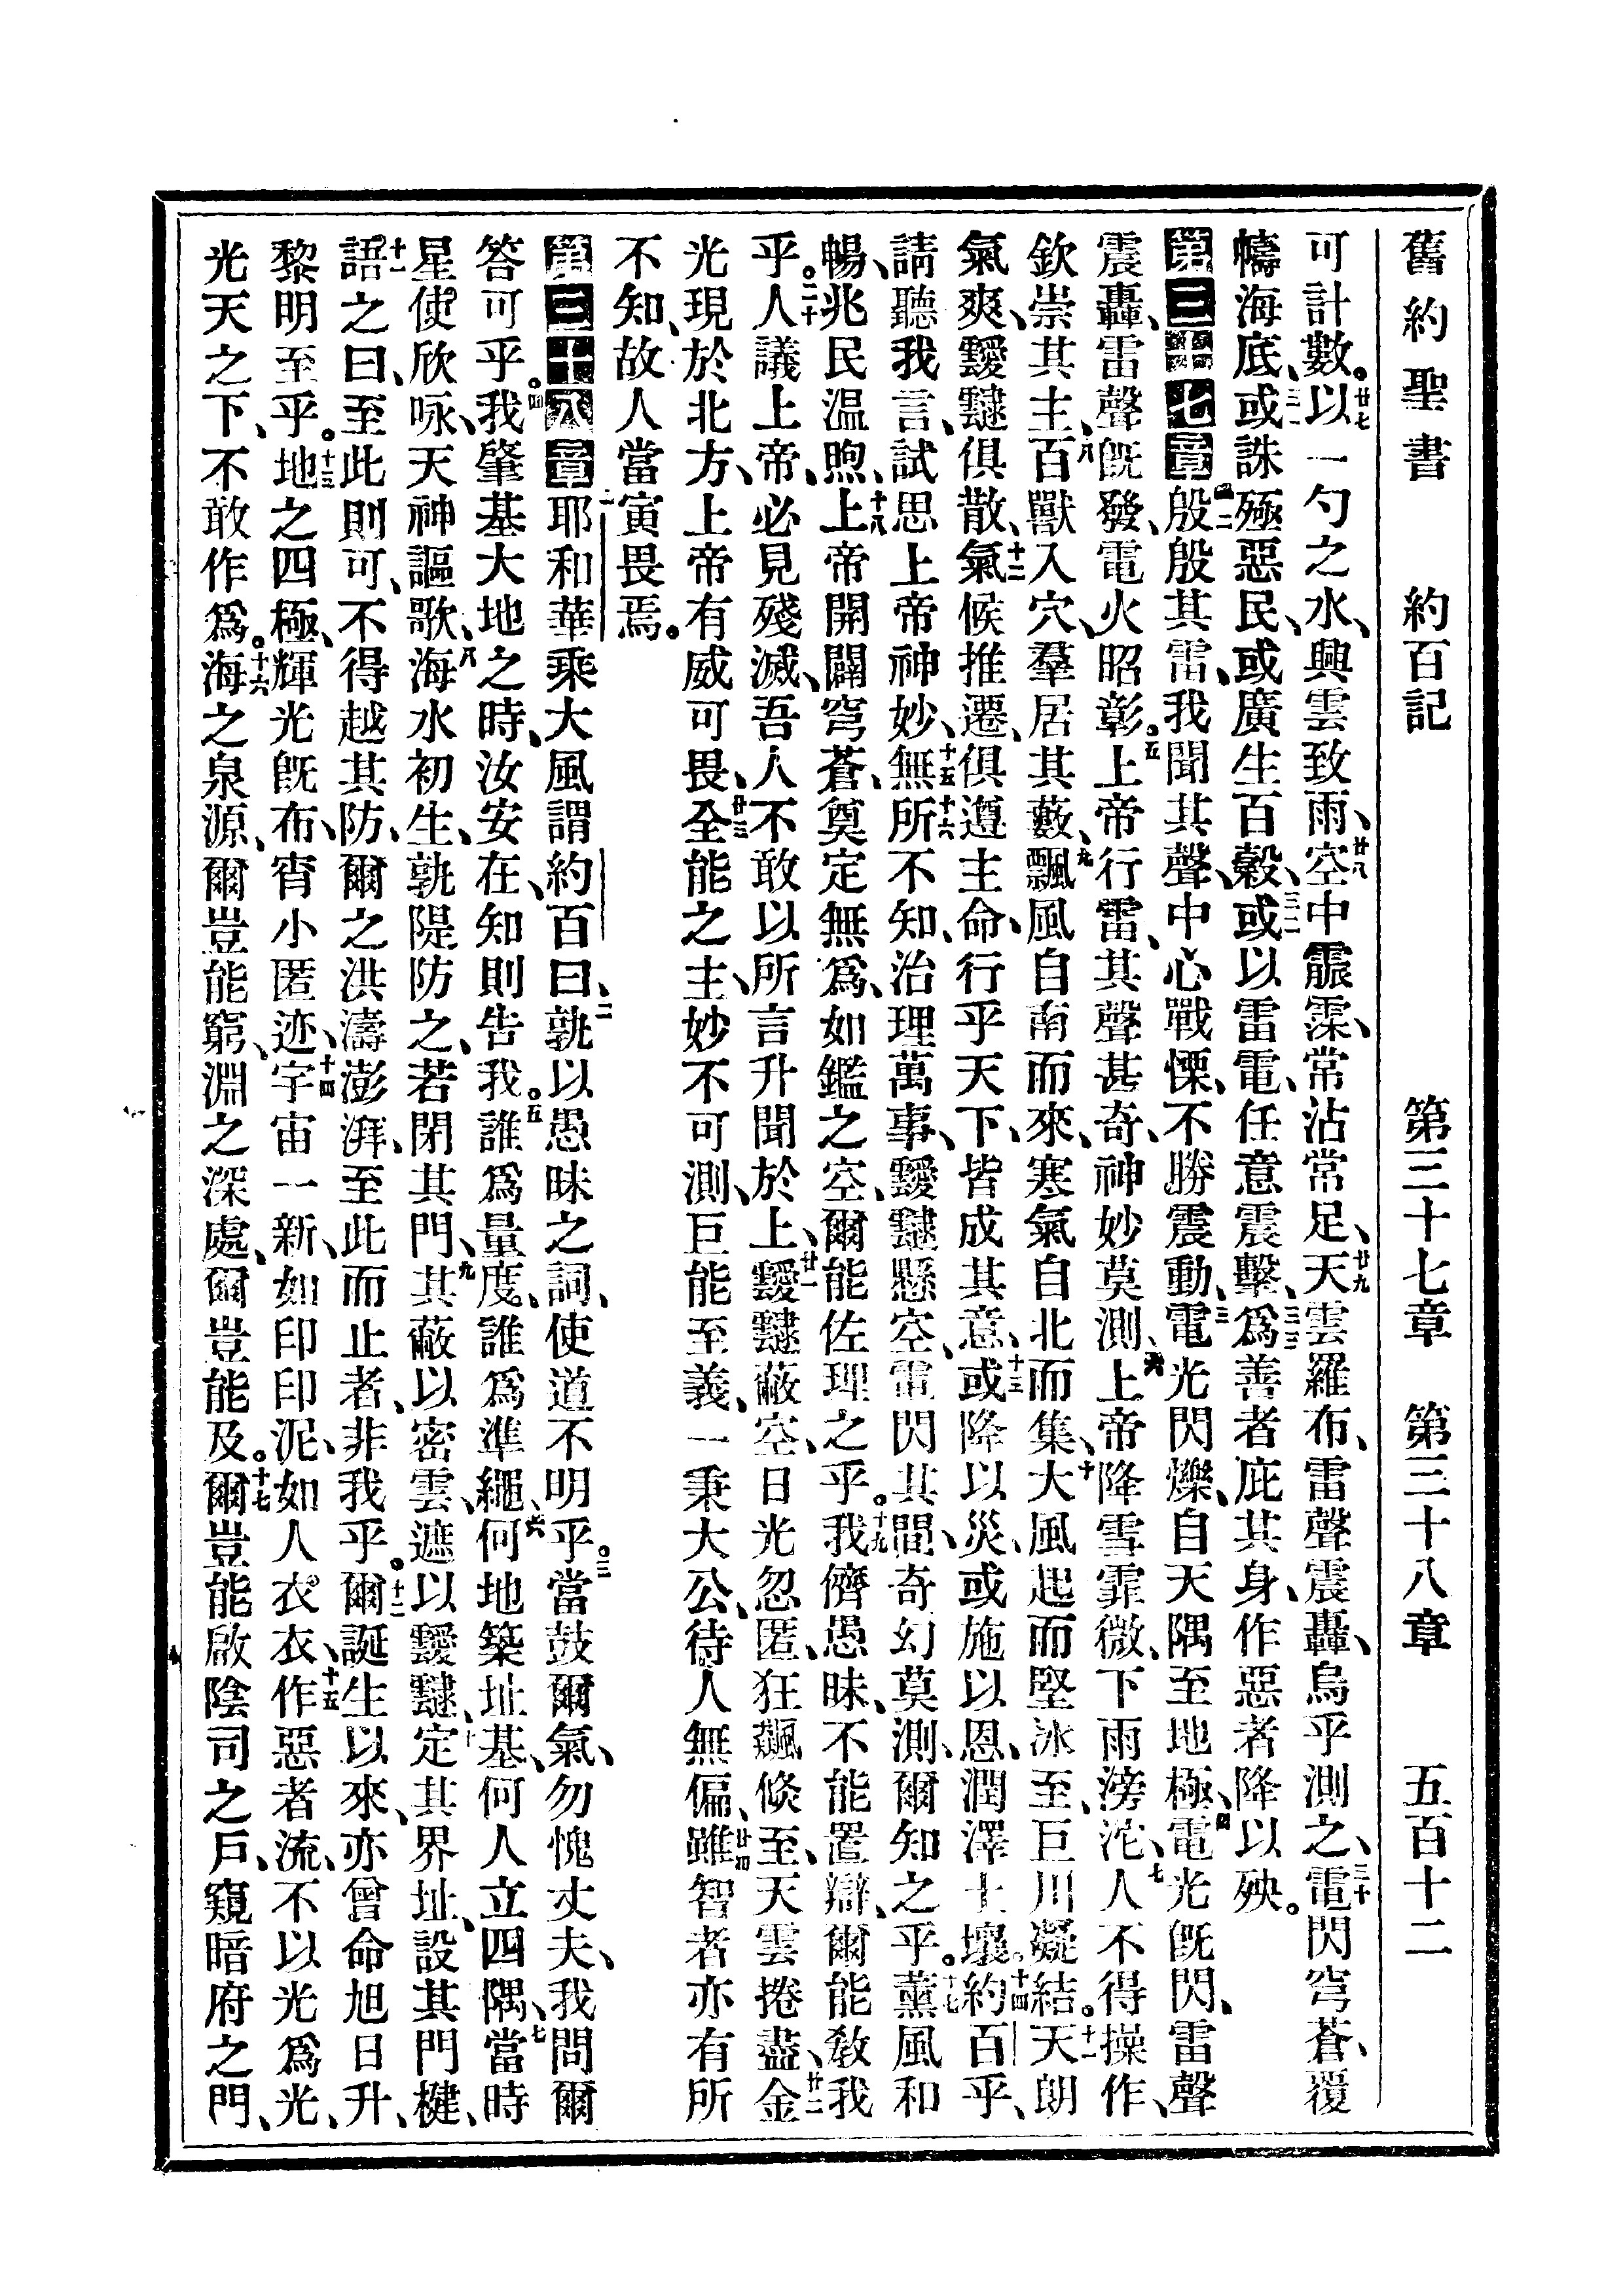 舊約聖書 約百記 第三十七章 第三十八章 五百十二
可計數。廿七以一勺之水、興雲致雨、廿八空中霢霂、常沾常足、廿九天雲羅布、雷聲震轟、烏乎測之、三十電閃穹蒼、覆
幬海底、三一或誅殛惡民、或廣生百穀、三二或以雷電、任意震擊、三三爲善者庇其身、作惡者降以殃。
第三十七章一二殷殷其雷、我聞其聲、中心戰慄、不勝震動、三電光閃爍、自天隅至地極、四電光旣閃、雷聲
震轟、雷聲旣發、電火昭彰。五上帝行雷、其聲甚奇、神妙莫測、六上帝降雪霏微、下雨滂沱、七人不得操作、
欽崇其主、八百獸入穴、羣居其藪、九飄風自南而來、寒氣自北而集、十大風起而堅冰至、巨川凝結。十一天朗
氣爽、靉靆俱散、十二氣候推遷、俱遵主命、行乎天下、皆成其意、十三或降以災、或施以恩、潤澤土壤。十四約百乎、
請聽我言、試思上帝神妙、十五十六無所不知、治理萬事、靉靆懸空、雷閃其間、奇幻莫測、爾知之乎。十七薰風和
暢、兆民温煦、十八上帝開闢穹蒼、奠定無爲、如鑑之空、爾能佐理之乎。十九我儕愚昧、不能置辯、爾能敎我
乎。二十人議上帝、必見殘滅、吾人不敢以所言升聞於上、廿一靉靆蔽空、日光忽匿、狂飆倐至、天雲捲盡、廿二金
光現於北方、上帝有威可畏、廿三全能之主、妙不可測、巨能至義、一秉大公、待人無偏、廿四雖智者亦有所
不知、故人當寅畏焉。
第三十八章一耶和華乘大風謂約百曰、二孰以愚昧之詞、使道不明乎。三當鼓爾氣、勿愧丈夫、我問爾
答可乎。四我肇基大地之時、汝安在、知則告我。五誰爲量度、誰爲準繩、六何地築址基、何人立四隅、七當時
星使欣咏、天神謳歌、八海水初生、孰隄防之、若閉其門、九其蔽以密雲、遮以靉靆、十定其界址、設其門楗、
十一語之曰、至此則可、不得越其防、爾之洪濤澎湃、至此而止者、非我乎。十二爾誕生以來、亦曾命旭日升、
黎明至乎。十三地之四極、輝光旣布、宵小匿迹、十四宇宙一新、如印印泥、如人衣衣、十五作惡者流、不以光爲光、
光天之下、不敢作爲。十六海之泉源、爾豈能窮、淵之深處、爾豈能及。十七爾豈能啟陰司之戶、窺暗府之門、